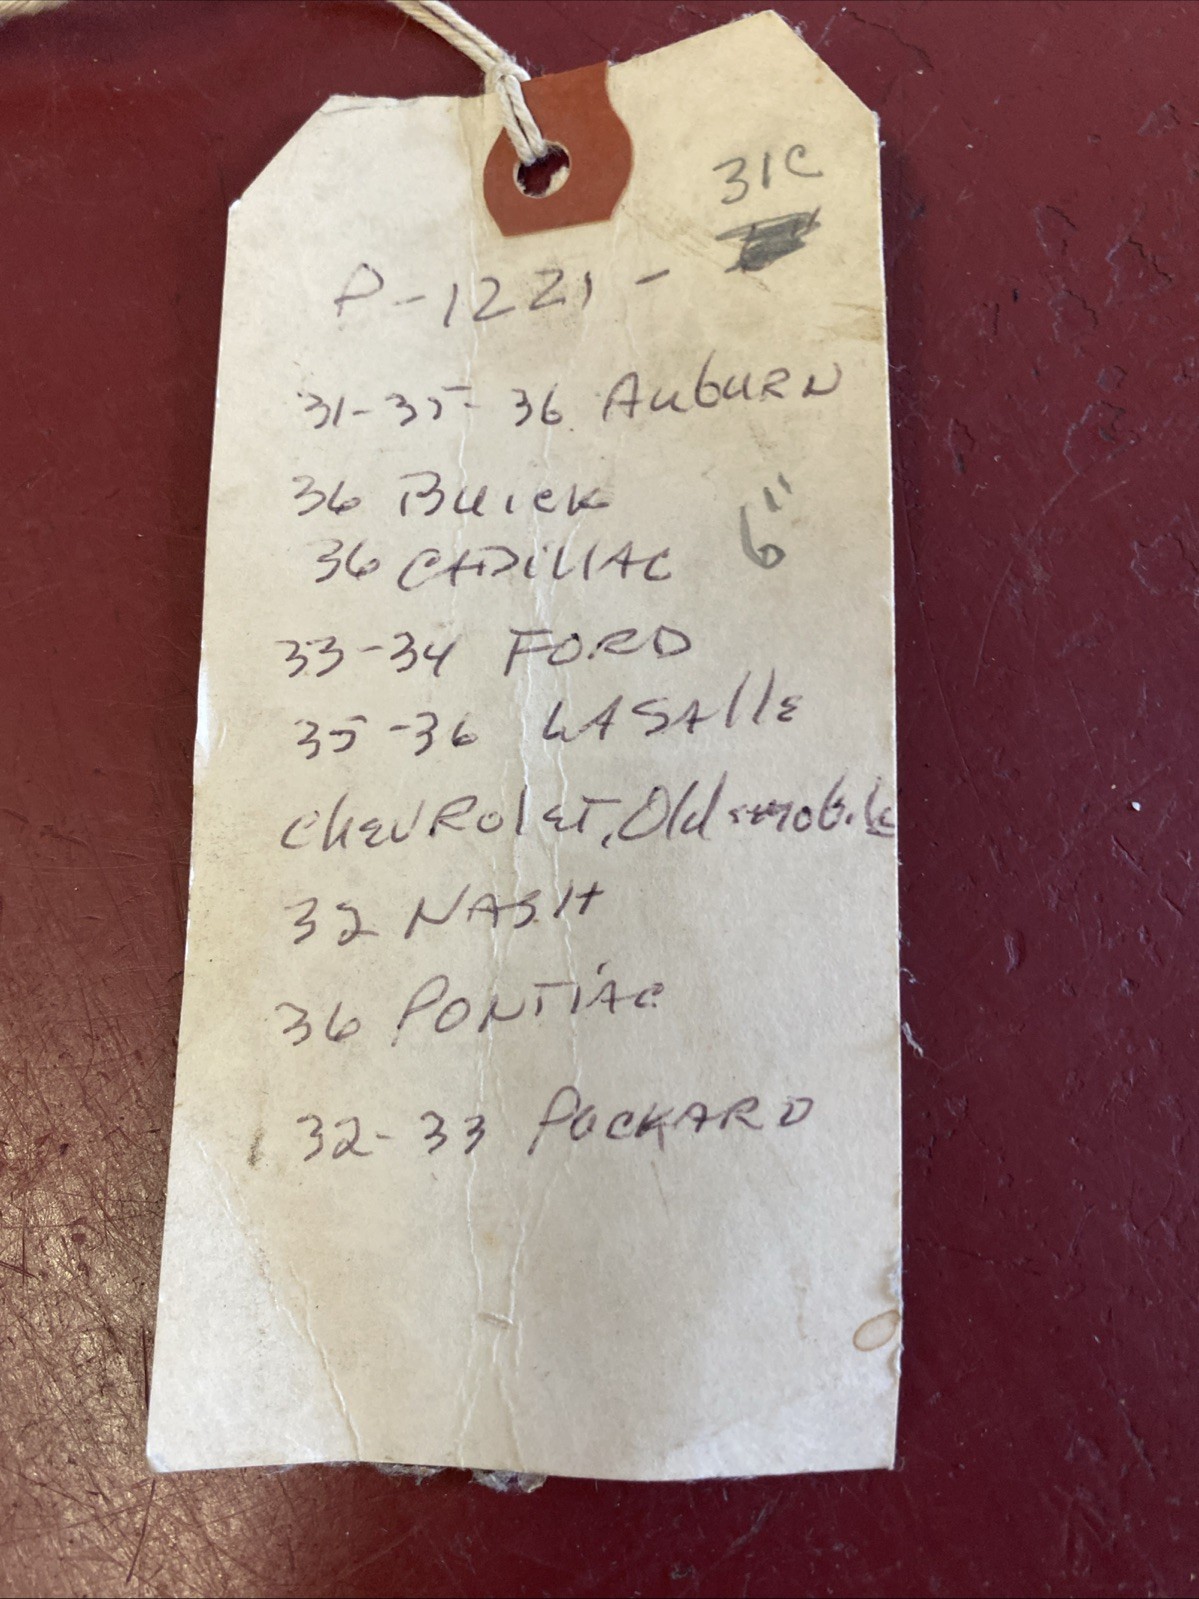 31C
P-1221 -
31-35-36 AuburN
36 Buick
6"
36 CADillAC
33-34 FORD
35-36 LASAlle
ChevRolet, Oldsmobile
32 NASH
36 PONTiAC
32-33 PACKARD